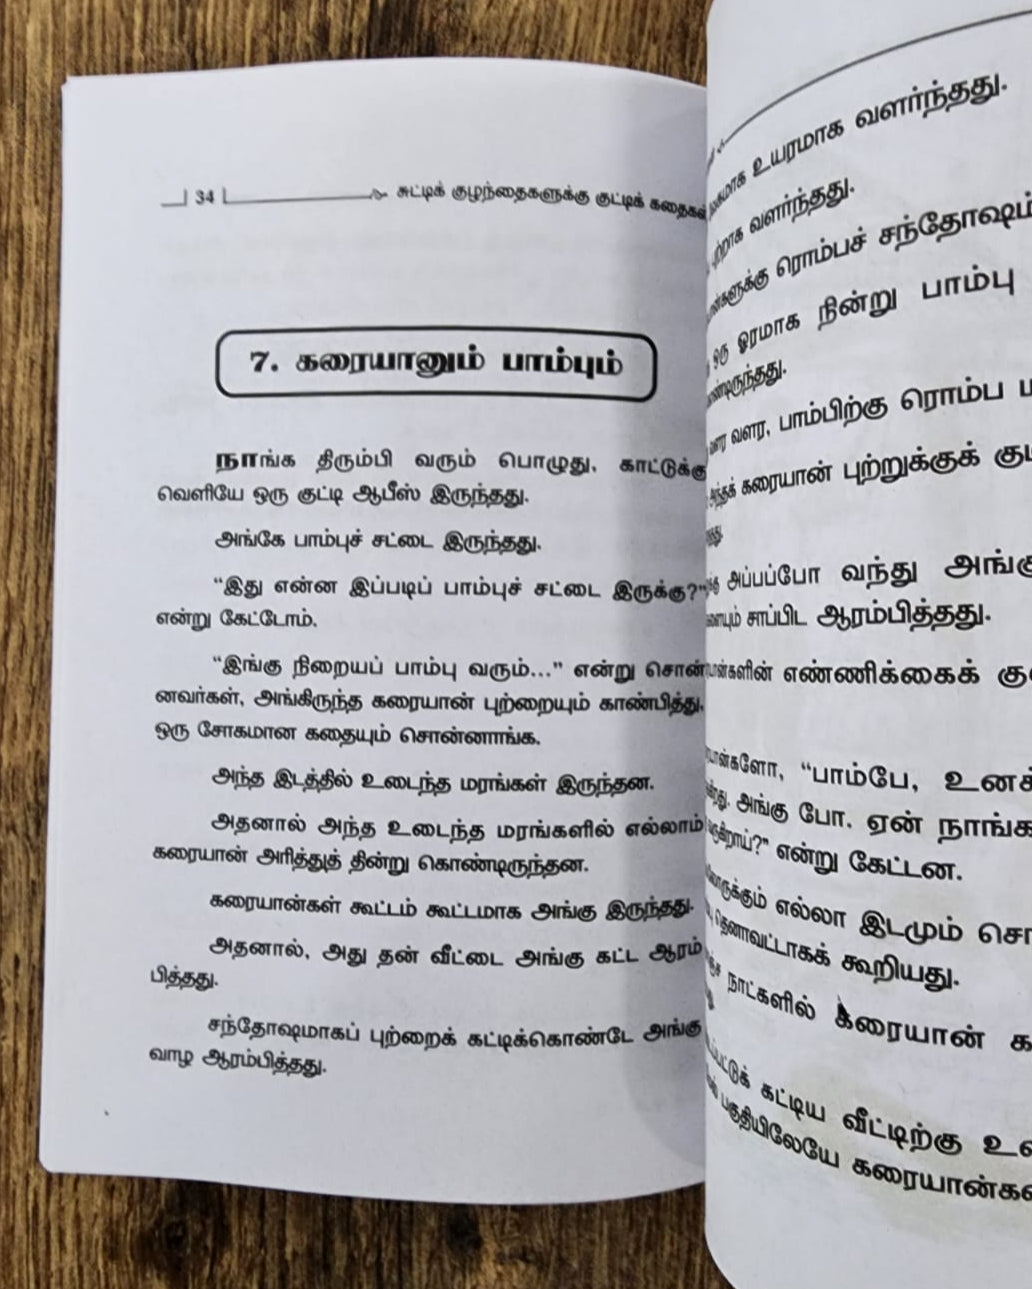 34 சுட்டிக் குழந்தைகளுக்கு குட்டிக் கதைகள்
7. கரையானும் பாம்பும்
நாங்க திரும்பி வரும் பொழுது, காட்டுக்கு
வெளியே ஒரு குட்டி ஆபீஸ் இருந்தது.
அங்கே பாம்புச் சட்டை இருந்தது.
“இது என்ன இப்படிப் பாம்புச் சட்டை இருக்கு?”
என்று கேட்டோம்.
“இங்கு நிறையப் பாம்பு வரும்...” என்று சொன்
னவர்கள், அங்கிருந்த கரையான் புற்றையும் காண்பித்து,
ஒரு சோகமான கதையும் சொன்னாங்க.
அந்த இடத்தில் உடைந்த மரங்கள் இருந்தன.
அதனால் அந்த உடைந்த மரங்களில் எல்லாம்
கரையான் அரித்துத் தின்று கொண்டிருந்தன.
கரையான்கள் கூட்டம் கூட்டமாக அங்கு இருந்தது.
அதனால், அது தன் வீட்டை அங்கு கட்ட ஆரம்
பித்தது.
சந்தோஷமாகப் புற்றைக் கட்டிக்கொண்டே அங்கு
வாழ ஆரம்பித்தது.
உயரமாக வளர்ந்தது.
வளர்ந்தது.
ரொம்பச் சந்தோஷம்
ஒரு ஓரமாக நின்று பாம்பு
வளர, பாம்பிற்கு ரொம்ப
அந்தக் கரையான் புற்றுக்குக்
அப்பப்போ வந்து
சாப்பிட ஆரம்பித்தது.
எண்ணிக்கைக்
“பாம்பே,
அங்கு போ. ஏன்
என்று கேட்டன.
எல்லா இடமும்
தெனாவட்டாகக் கூறியது.
நாட்களில் கரையான்
கட்டிய வீட்டிற்கு
பகுதியிலேயே